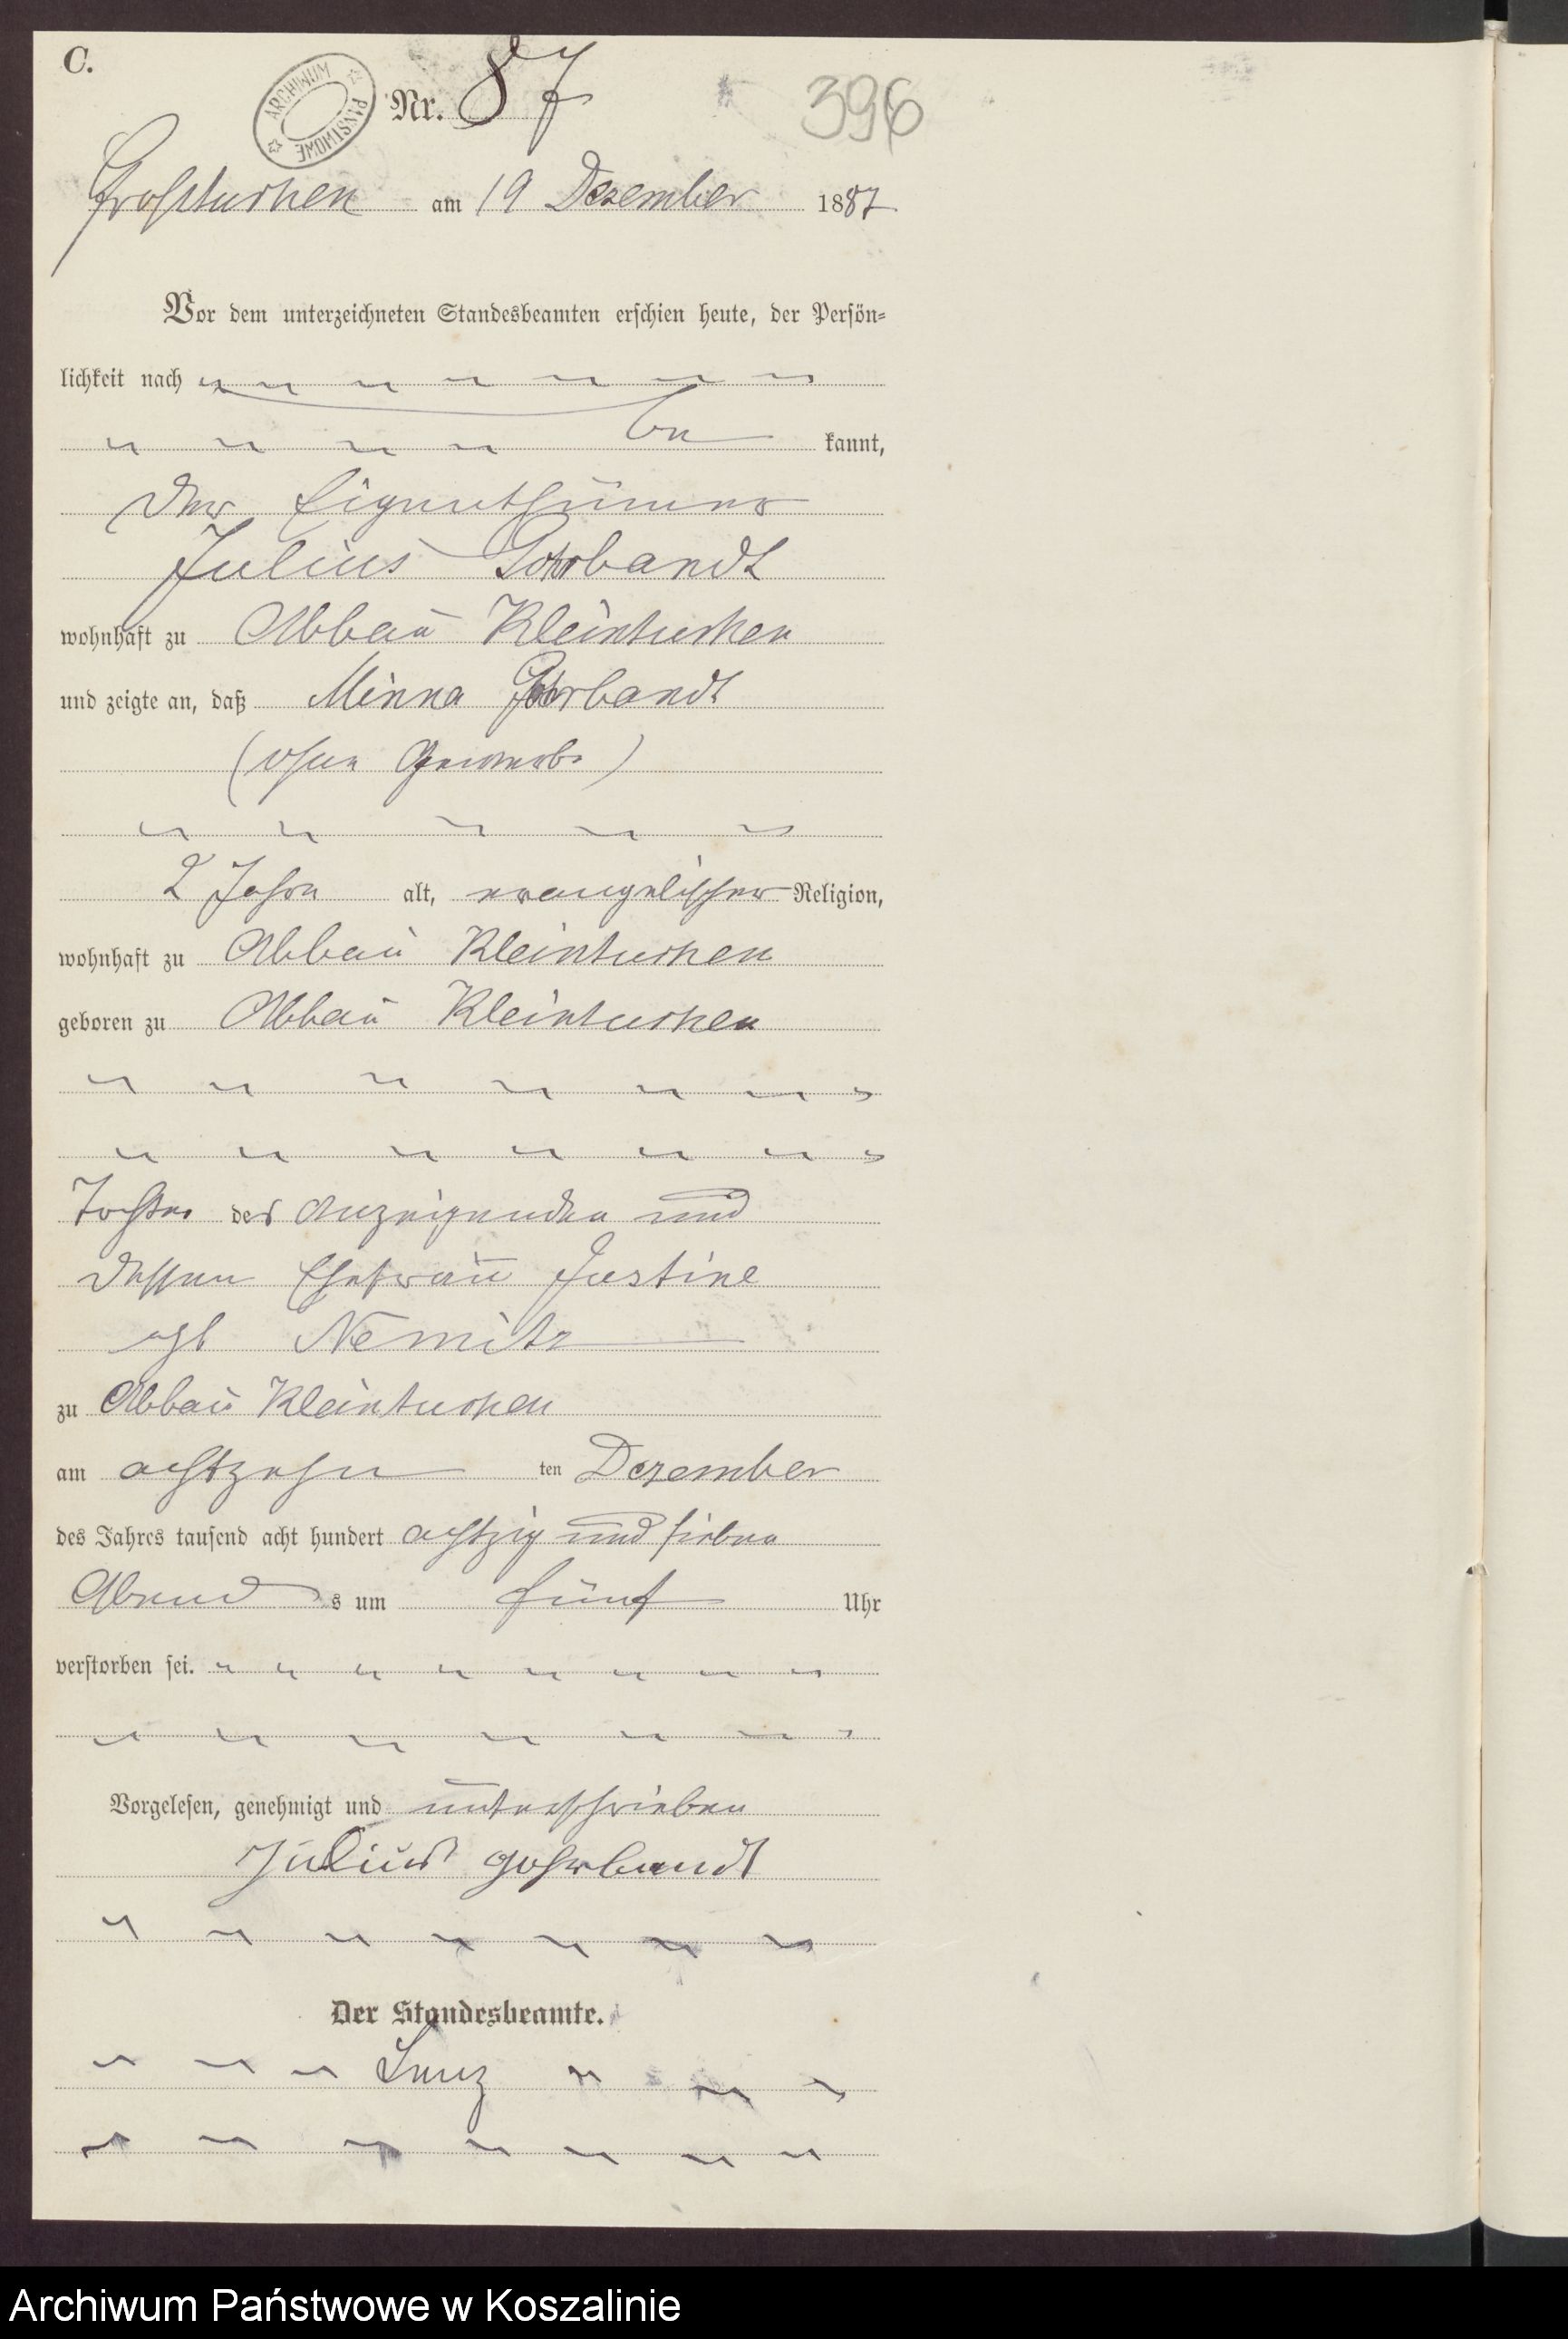 C.
ARCHIWUM PAŃSTWOWE
Nr. 87
396
Großtuchen am 19 Dezember 1887
Vor dem unterzeichneten Standesbeamten erschien heute, der Persön=
lichkeit nach
be kannt,
der Eigenthümer
Julius Gohrbandt
wohnhaft zu Abbau Kleintuchen
und zeigte an, daß Minna Gohrbandt
(ohne Gewerbe)
2 Jahre alt, evangelischer Religion,
wohnhaft zu Abbau Kleintuchen
geboren zu Abbau Kleintuchen
Tochter des Anzeigenden und
dessen Ehefrau Justine
geb Nemitz
zu Abbau Kleintuchen
am achtzehn ten Dezember
des Jahres tausend acht hundert achtzig und sieben
Abend s um fünf Uhr
verstorben sei.
Vorgelesen, genehmigt und unterschrieben
Julius Gohrbandt
Der Standesbeamte.
Lenz
Archiwum Państwowe w Koszalinie